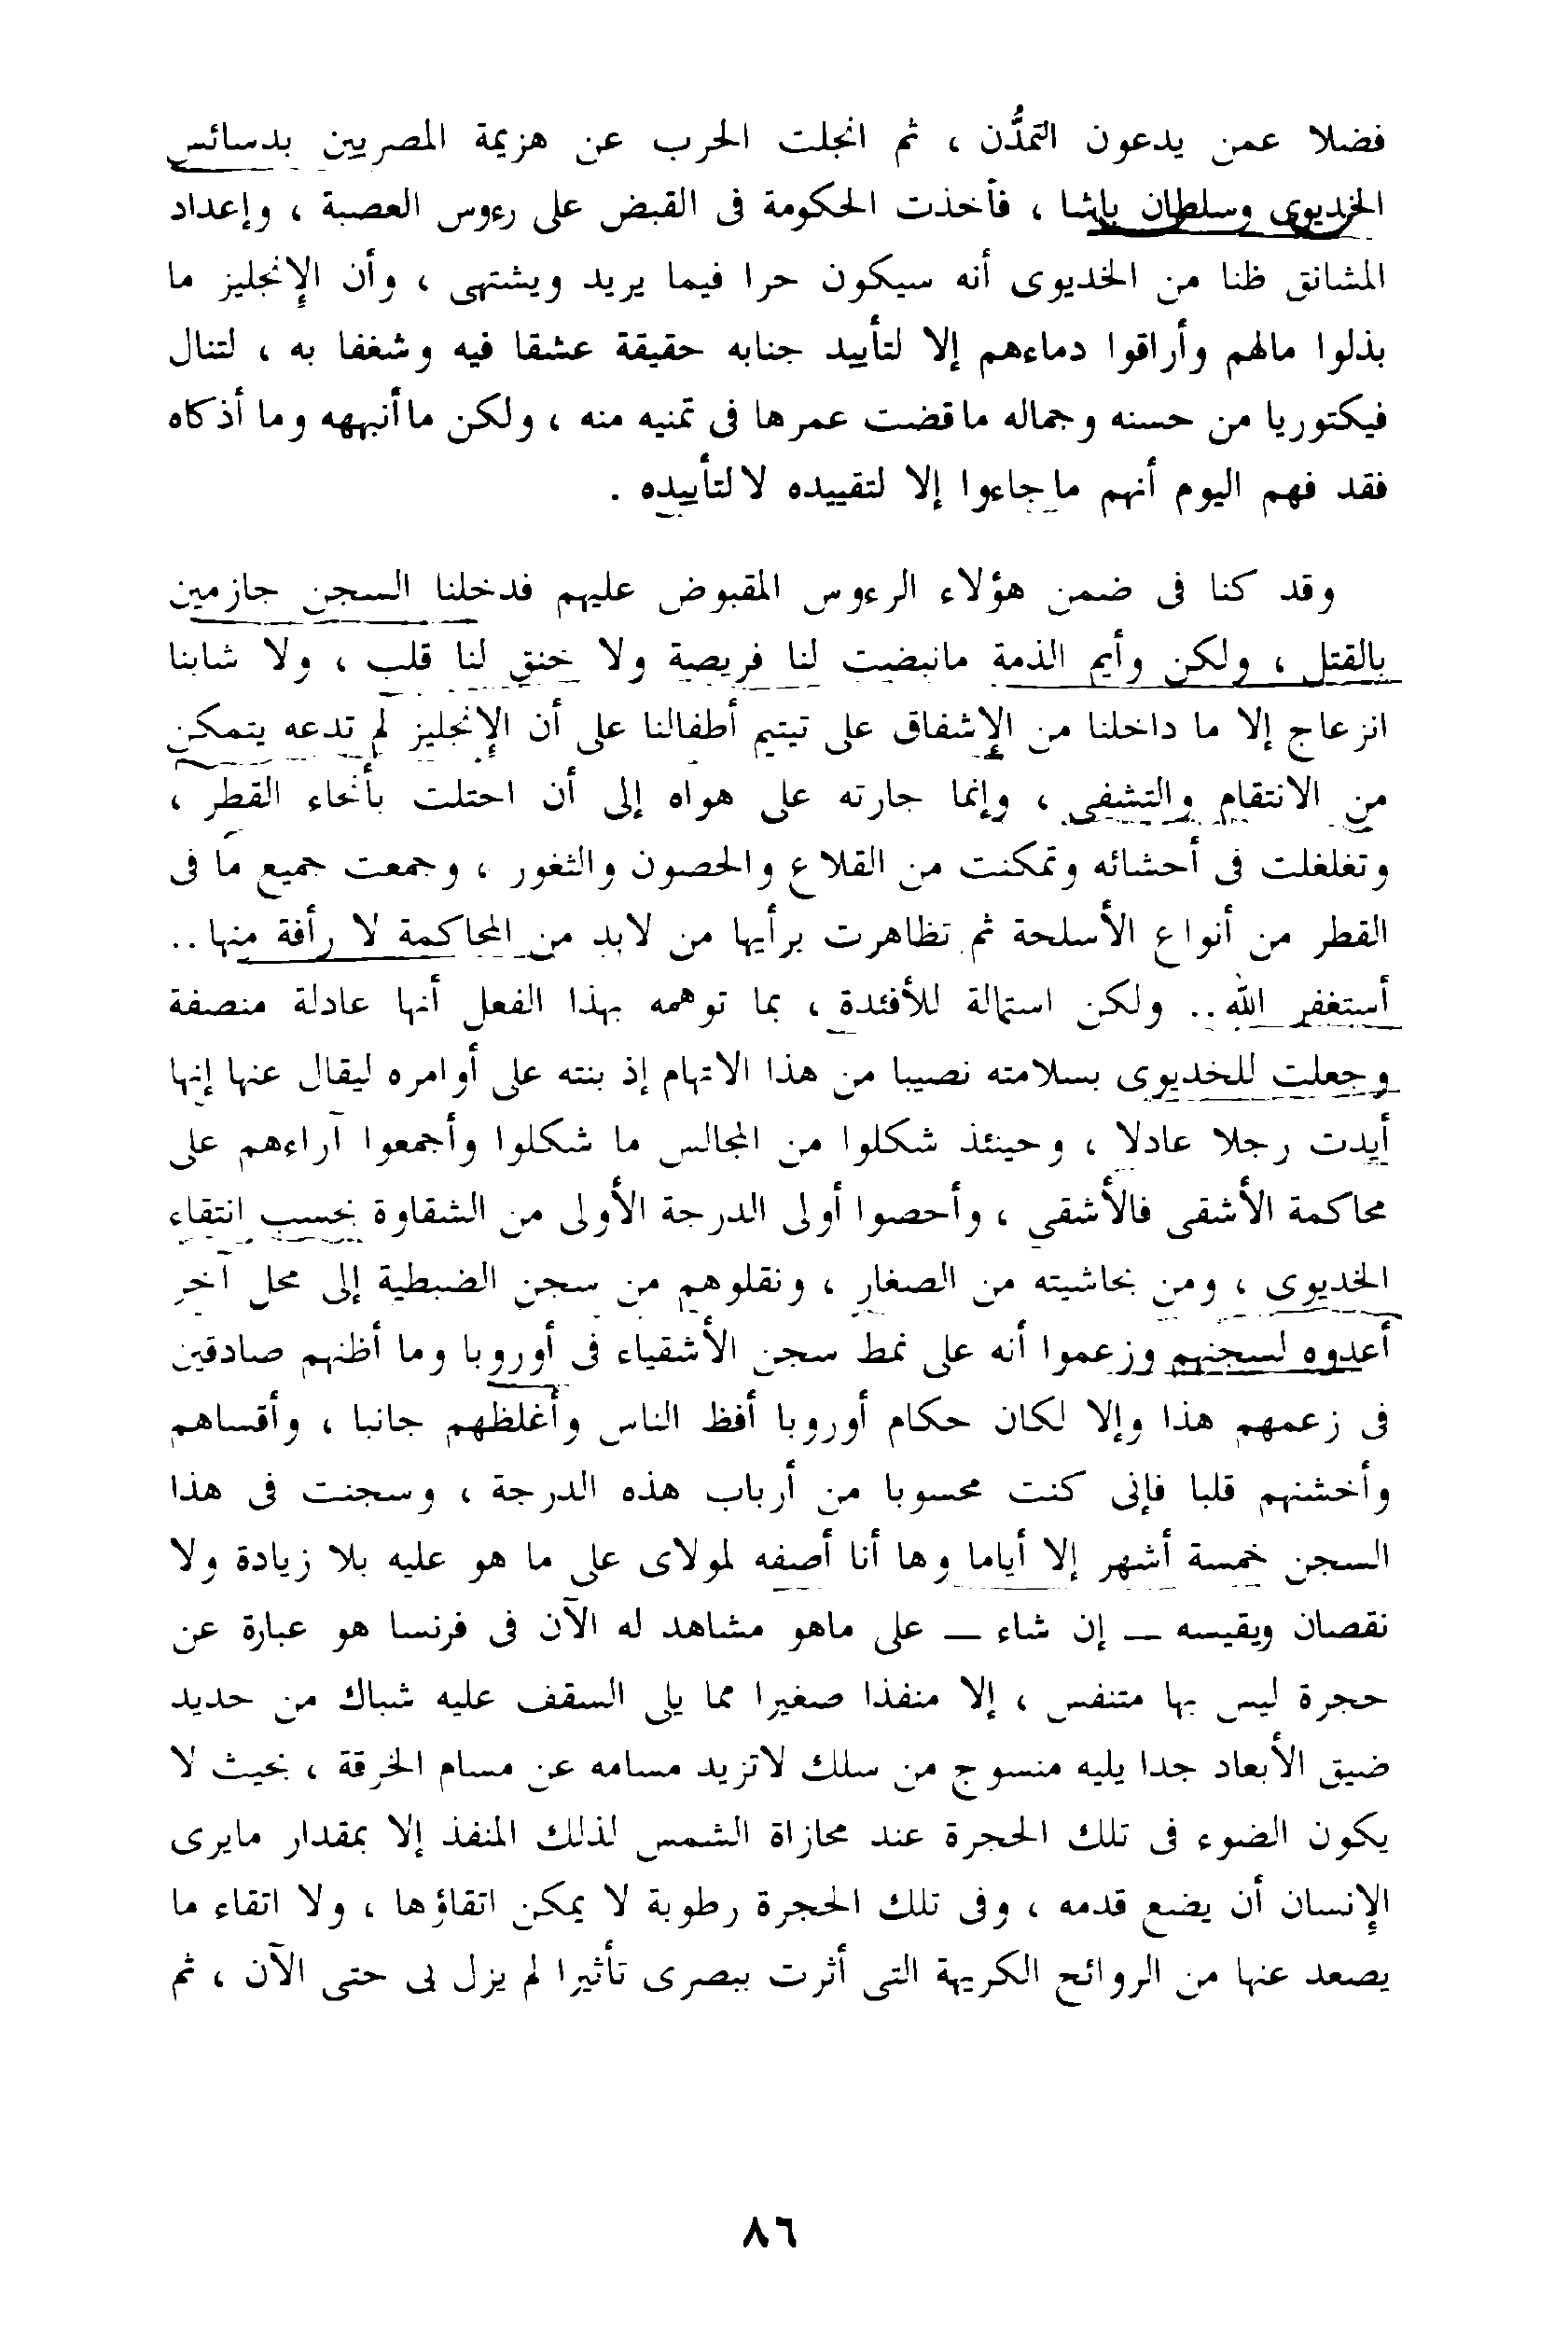 فضلا عمن يدعون التمدُّن ، ثم انجلت الحرب عن هزيمة المصريين بدسائس
الخديوى وسلطان باشا ، فأخذت الحكومة فى القبض على رءوس العصبة ، وإعداد
المشانق ظنا من الخديوى أنه سيكون حرا فيما يريد ويشتهى ، وأن الإنجليز ما
بذلوا مالهم وأراقوا دماءهم إلا لتأييد جنابه حقيقة عشقا فيه وشغفا به ، لتنال
فيكتوريا من حسنه وجماله ماقضت عمرها فى تمنيه منه ، ولكن ماأنبهه وما أذكاه
فقد فهم اليوم أنهم ماجاءوا إلا لتقييده لا لتأييده .
وقد كنا فى ضمن هؤلاء الرءوس المقبوض عليهم فدخلنا السجن جازمين
بالقتل ، ولكن وأيم الذمة مانبضت لنا فريصة ولا خنق لنا قلب ، ولا شابنا
انزعاج إلا ما داخلنا من الإشفاق على تيتيم أطفالنا على أن الإنجليز لم تدعه يتمكن
من الانتقام والتشفى ، وإنما جارته على هواه إلى أن احتلت بأنحاء القطر ،
وتغلغلت فى أحشائه وتمكنت من القلاع والحصون والثغور ، وجمعت جميع ما فى
القطر من أنواع الأسلحة ثم تظاهرت برأيها من لابد من المحاكمة لا رأفة منها ..
أستغفر الله .. ولكن استمالة للأفئدة ، بما توهمه بهذا الفعل أنها عادلة منصفة
وجعلت للخديوى بسلامته نصيبا من هذا الاتهام إذ بنته على أوامره ليقال عنها إنها
أيدت رجلا عادلا ، وحينئذ شكلوا من المجالس ما شكلوا وأجمعوا آراءهم على
محاكمة الأشقى فالأشقى ، وأحصوا أولى الدرجة الأولى من الشقاوة بحسب انتقاء
الخديوى ، ومن بحاشيته من الصغار ، ونقلوهم من سجن الضبطية إلى محل آخر
أعدوه لسجنهم وزعموا أنه على نمط سجن الأشقياء فى أوروبا وما أظنهم صادقين
فى زعمهم هذا وإلا لكان حكام أوروبا أفظ الناس وأغلظهم جانبا ، وأقساهم
وأخشنهم قلبا فإنى كنت محسوبا من أرباب هذه الدرجة ، وسجنت فى هذا
السجن خمسة أشهر إلا أياما وها أنا أصفه لمولاى على ما هو عليه بلا زيادة ولا
نقصان ويقيسه — إن شاء — على ماهو مشاهد له الآن فى فرنسا هو عبارة عن
حجرة ليس بها متنفس ، إلا منفذا صغيرا مما يلى السقف عليه شباك من حديد
ضيق الأبعاد جدا يليه منسوج من سلك لاتزيد مسامه عن مسام الخرقة ، بحيث لا
يكون الضوء فى تلك الحجرة عند محازاة الشمس لذلك المنفذ إلا بمقدار مايرى
الإنسان أن يضع قدمه ، وفى تلك الحجرة رطوبة لا يمكن اتقاؤها ، ولا اتقاء ما
يصعد عنها من الروائح الكريهة التى أثرت ببصرى تأثيرا لم يزل لى حتى الآن ، ثم
٨٦